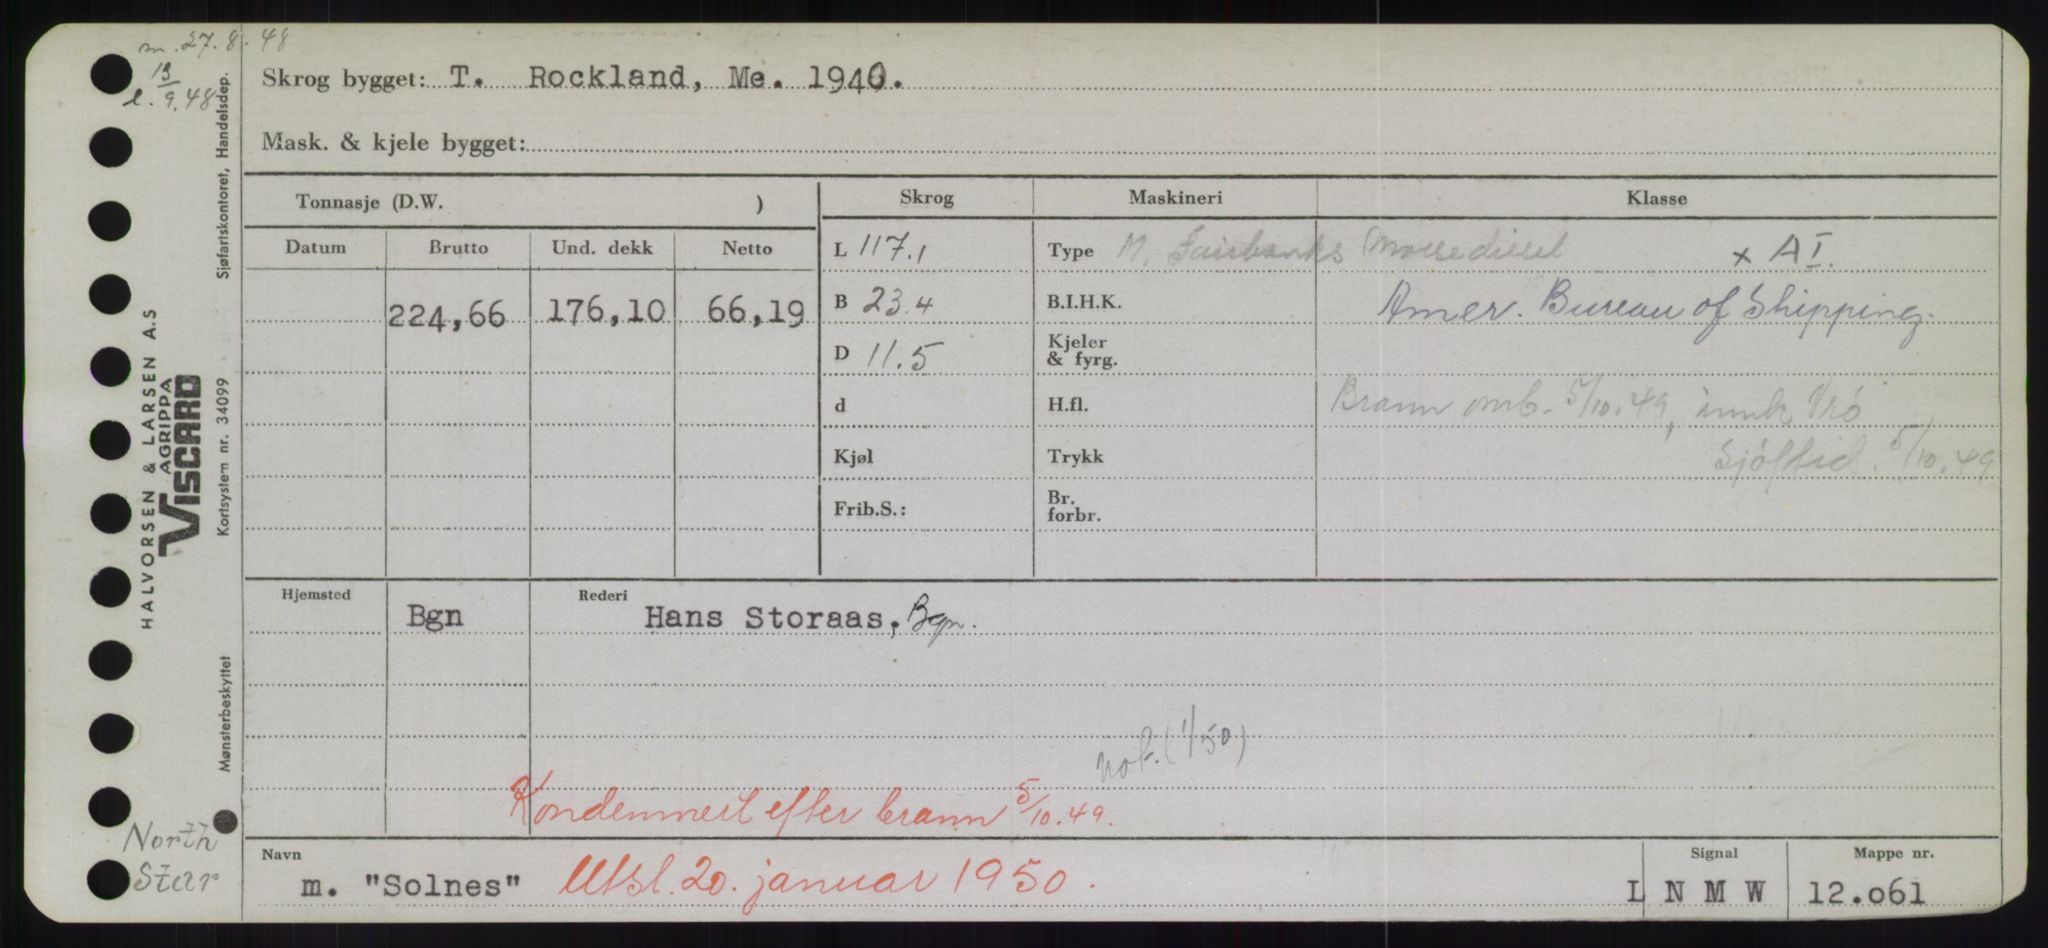 m. 27.8.48
l. 13/9.48
HALVORSEN & LARSEN A.S
AGRIPPA
VISCARD
Mønsterbeskyttet Kortsystem nr. 34099 Sjøfartskontoret, Handelsdep.
Skrog bygget: T. Rockland, Me. 1940.
Mask. & kjele bygget:
Tonnasje (D.W. )
Skrog Maskineri Klasse
Datum Brutto Und. dekk Netto
224,66 176,10 66,19
L 117.1
B 23.4
D 11.5
d
Kjøl
Frib.S.:
Type M. Fairbanks Morse diesel
B.I.H.K.
Kjeler
& fyrg.
H.fl.
Trykk
Br.
forbr.
x A I.
Amer. Bureau of Shipping.
Brann omb. 5/10.49, innk
Sjøftid. 5/10.49
Hjemsted Rederi
Bgn Hans Storaas, Bgn.
not. (1/50)
Kondemnert efter brann 5/10.49.
North
Star
Navn
m. "Solnes" Utsl. 20. januar 1950.
Signal
L N M W
Mappe nr.
12.061